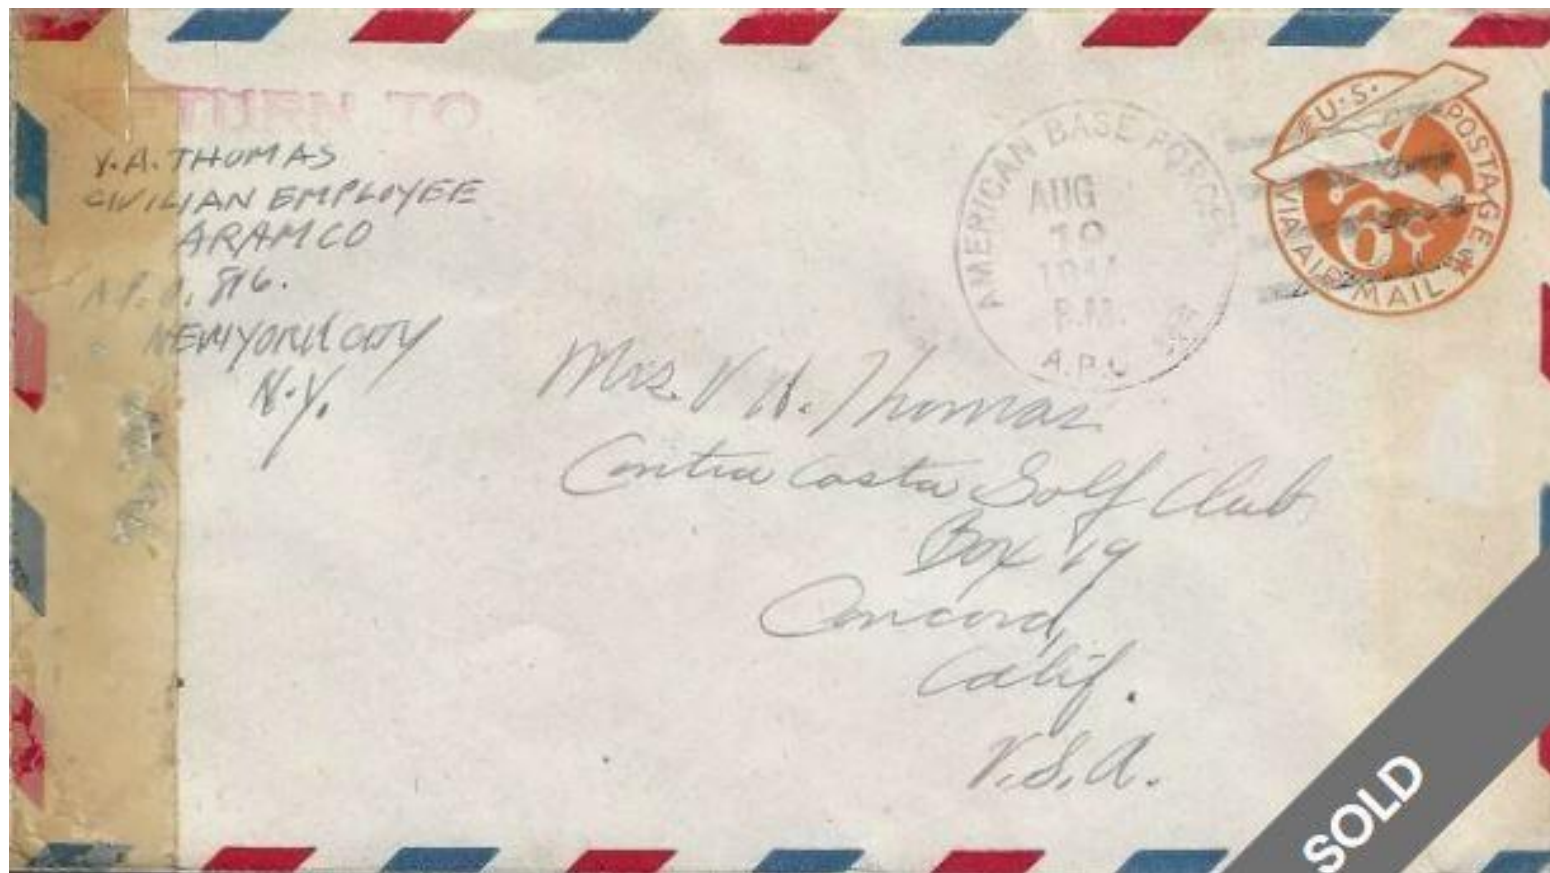 TURN TO
V. A. THOMAS
CIVILIAN EMPLOYEE
ARAMCO
A.P.O. 816.
NEW YORK CITY
N.Y.
AMERICAN BASE FORCES
AUG
19
P.M.
A.P.O.
U.S. POSTAGE
6¢
VIA AIR MAIL
Mrs. V A. Thomas
Contra Costa Golf Club
Box 19
Concord,
Calif.
U.S.A.
SOLD